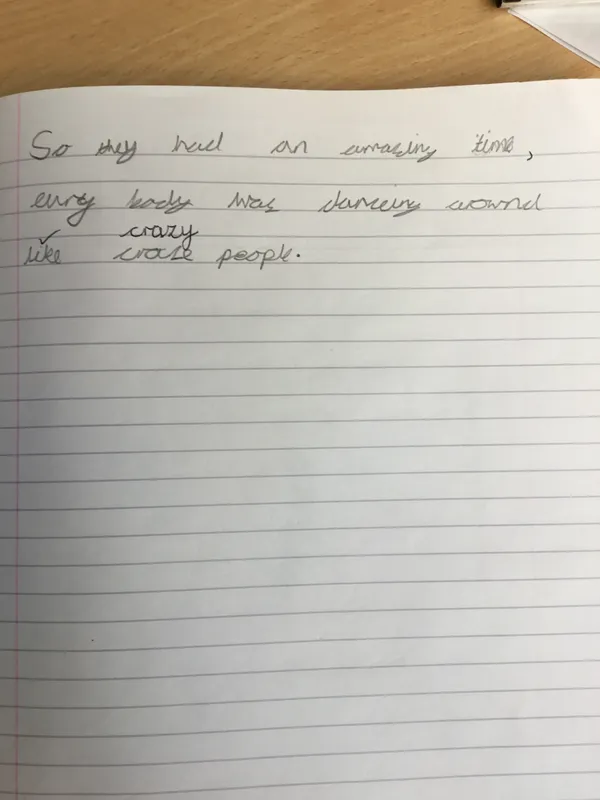 So they had an amazing time,
evry body was danceing arownd
crazy
like craze people.